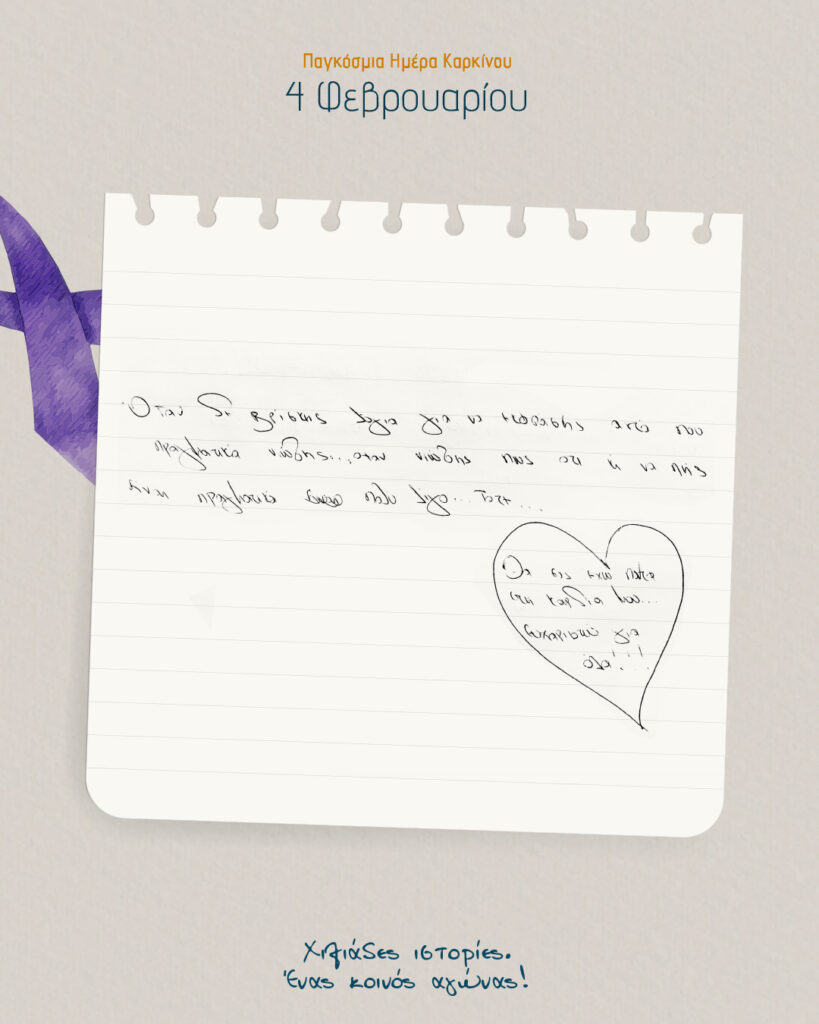 Παγκόσμια Ημέρα Καρκίνου
4 Φεβρουαρίου
Όταν δε βρίσκης λόγια για να εκφρασης αυτό που
πραγματικά νιώθης... όταν νιώθης πως οτι κ να πης
είναι πραγματικά πολυ λιγο... τοτε...
Θα σας εχω παντα
στη καρδια μου...
ευχαριστώ για
όλα!!!
Χιλιάδες ιστορίες.
Ένας κοινός αγώνας!